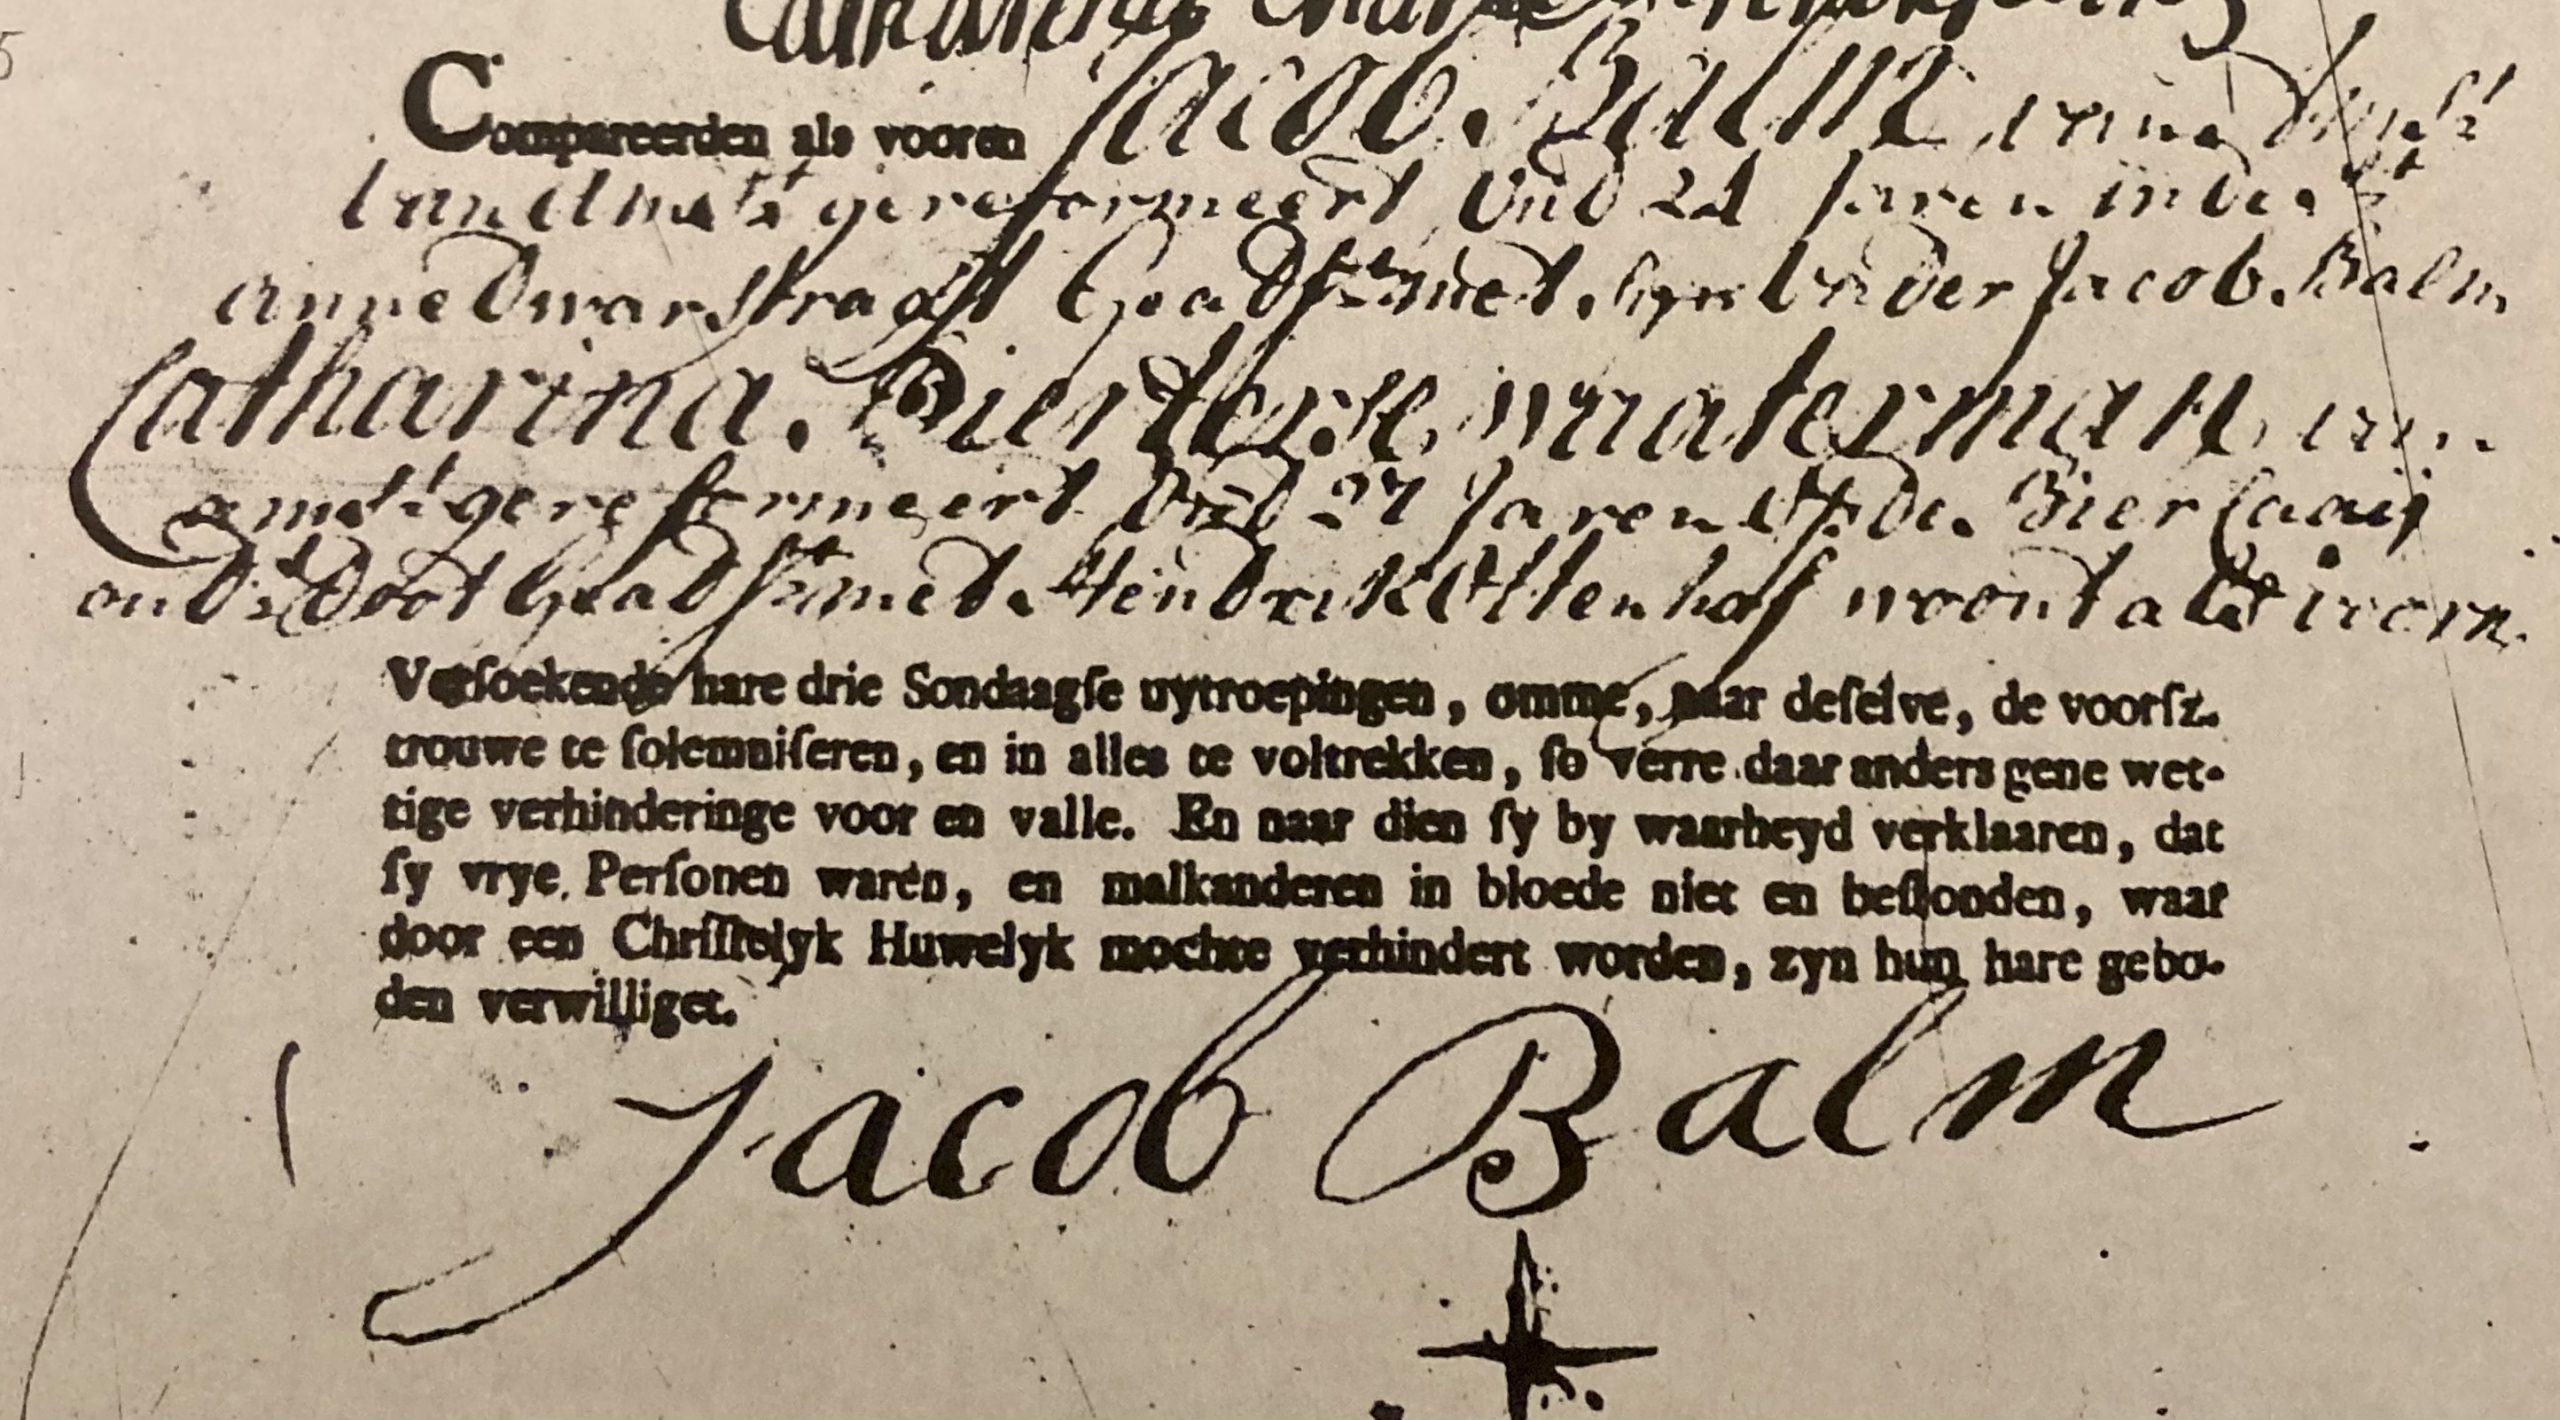 Catharina
Compareerden als vooren Jacob Balm van
gereformeert oud 21 Jaren in de St
anne dwarsstraat Geadst met syn vader Jacob Balm
Catharina Dierkse Waterman van
amst gereformeert oud 27 Jaren op de Bierkaaij
oud.s doot Geadst met Hendrik Ottenhof woont als voorn
Versoekende hare drie Sondaagſe uytroepingen, omme, naar deſelve, de voorſz.
trouwe te ſolemniſeren, en in alles te voltrekken, ſo verre daar anders gene wet-
tige verhinderinge voor en valle. En naar dien ſy by waarheyd verklaaren, dat
ſy vrye Perſonen waren, en malkanderen in bloede niet en beſtonden, waar
door een Chriſtelyk Huwelyk mochte verhindert worden, zyn hun hare gebo-
den verwilliget.
Jacob Balm